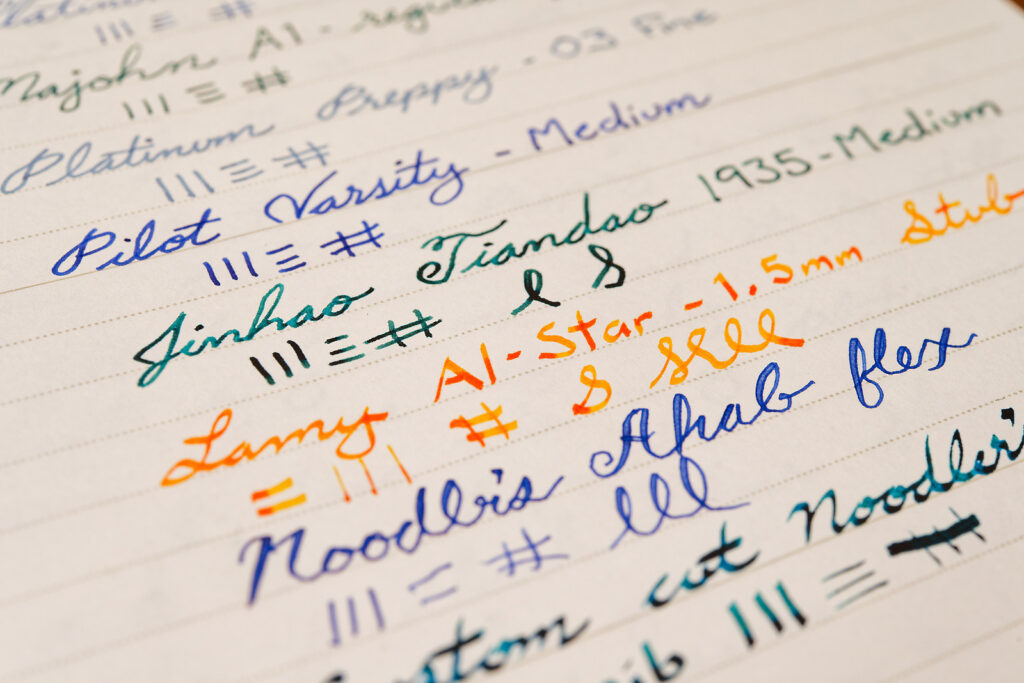 Platinum
Majohn A1 - regular
Platinum Preppy - 03 Fine
Pilot Varsity - Medium
Jinhao Tiandao 1935 - Medium
l S
Lamy Al-Star - 1.5mm Stub
S sell
Noodler's Ahab flex
lll
custom cut Noodler's
nib